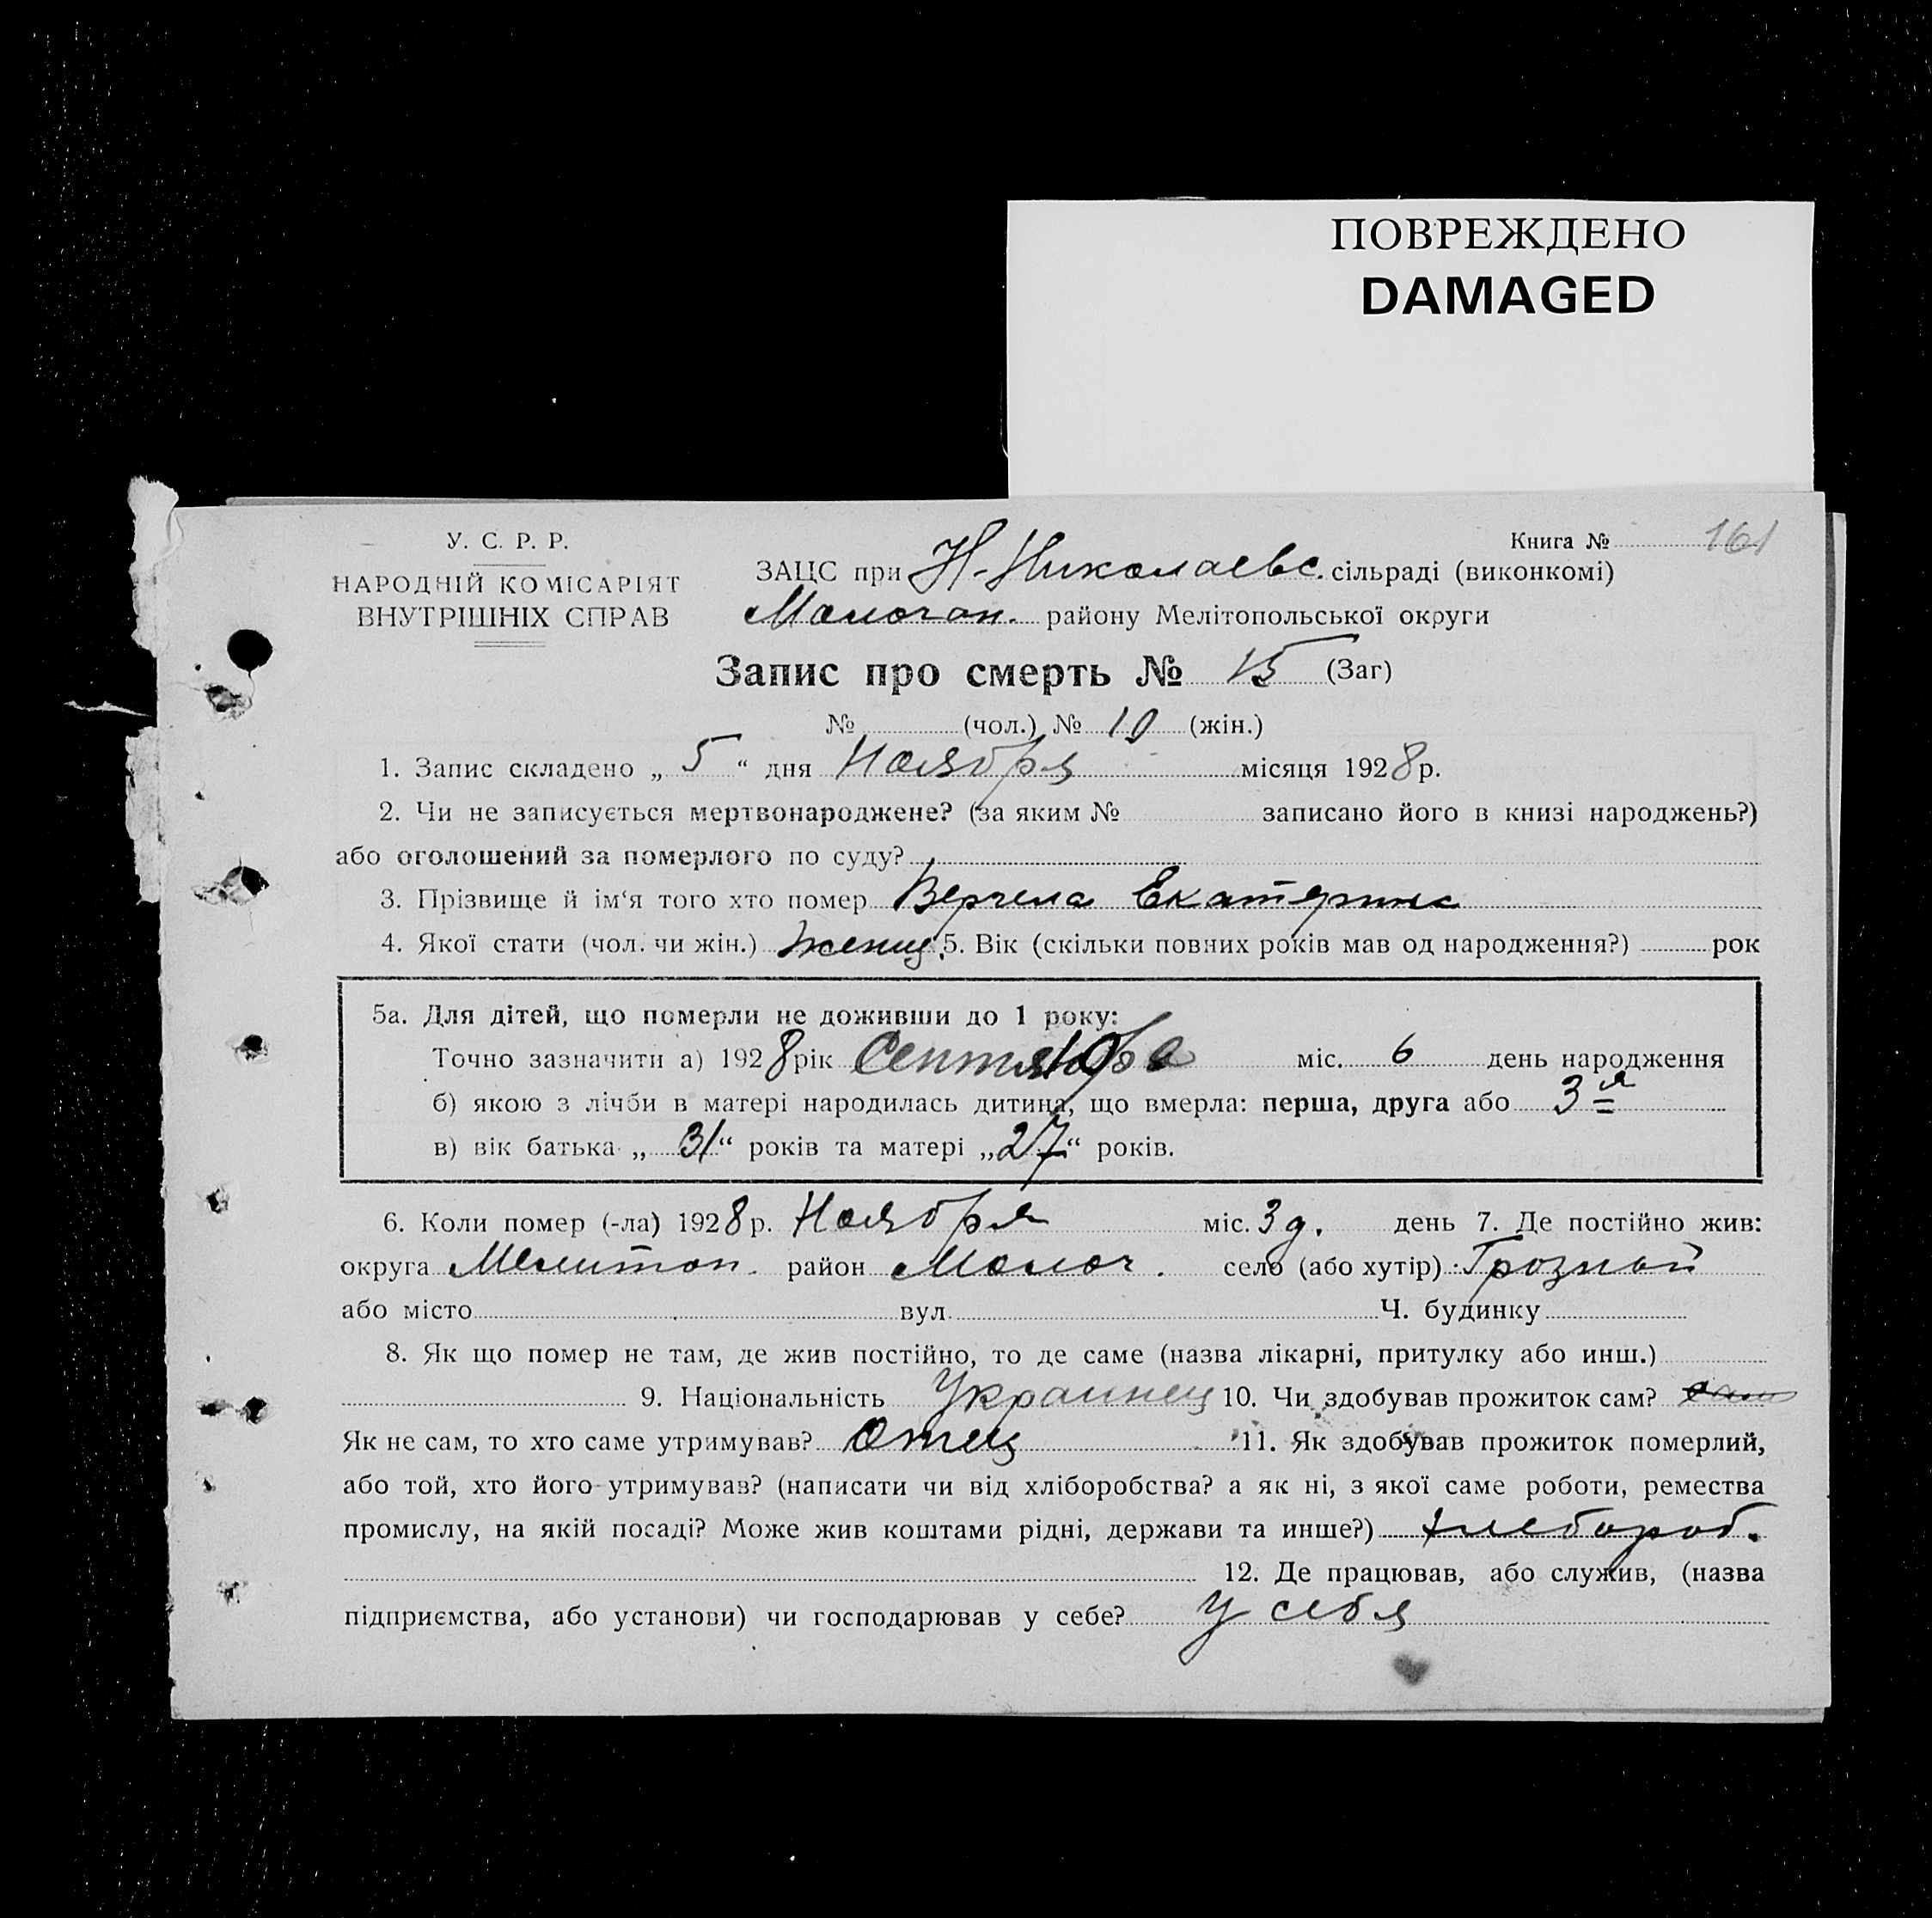 ПОВРЕЖДЕНО
DAMAGED
У. С. Р. Р.
НАРОДНІЙ КОМІСАРІЯТ
ВНУТРІШНІХ СПРАВ
Книга № 161
ЗАЦС при Н-Николаевс. сільраді (виконкомі)
Молочан. району Мелітопольської округи
Запис про смерть № 15 (Заг)
№ (чол.) № 10 (жін.)
1. Запис складено „ 5 “ дня Ноября місяця 1928 р.
2. Чи не записується мертвонароджене? (за яким № записано його в книзі народжень?)
або оголошений за померлого по суду?
3. Прізвище й ім‘я того хто помер Верчела Екатерина
4. Якої стати (чол. чи жін.) женщ. 5. Вік (скільки повних років мав од народження?) рок
5а. Для дітей, що померли не доживши до 1 року:
Точно зазначити а) 1928 рік міс. 6 день народження
б) якою з лічби в матері народилась дитина, що вмерла: перша, друга або 3я
в) вік батька „ 31 “ років та матері „ 27 “ років.
6. Коли помер (-ла) 1928 р. Ноября міс. 3 д. день 7. Де постійно жив:
округа Мелитоп. район Молоч. село (або хутір) Грозной
або місто вул. Ч. будинку
8. Як що помер не там, де жив постійно, то де саме (назва лікарні, притулку або инш.)
9. Національність Украинец 10. Чи здобував прожиток сам?
Як не сам, то хто саме утримував? Отец 11. Як здобував прожиток померлий,
або той, хто його утримував? (написати чи від хліборобства? а як ні, з якої саме роботи, ремества
промислу, на якій посаді? Може жив коштами рідні, держави та инше?) хлебороб.
12. Де працював, або служив, (назва
підприємства, або установи) чи господарював у себе? У себя